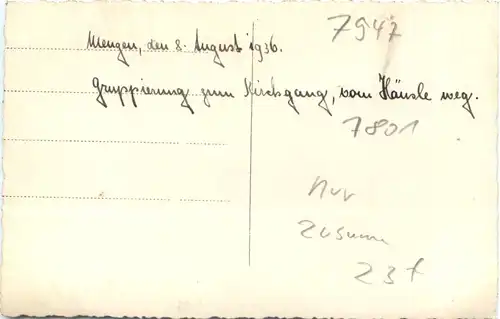 7947
Mengen, den 8. August 1936.
Gruppierung zum Kirchgang, vom Häusle weg.
7801
Nur
Zusamm
23 f